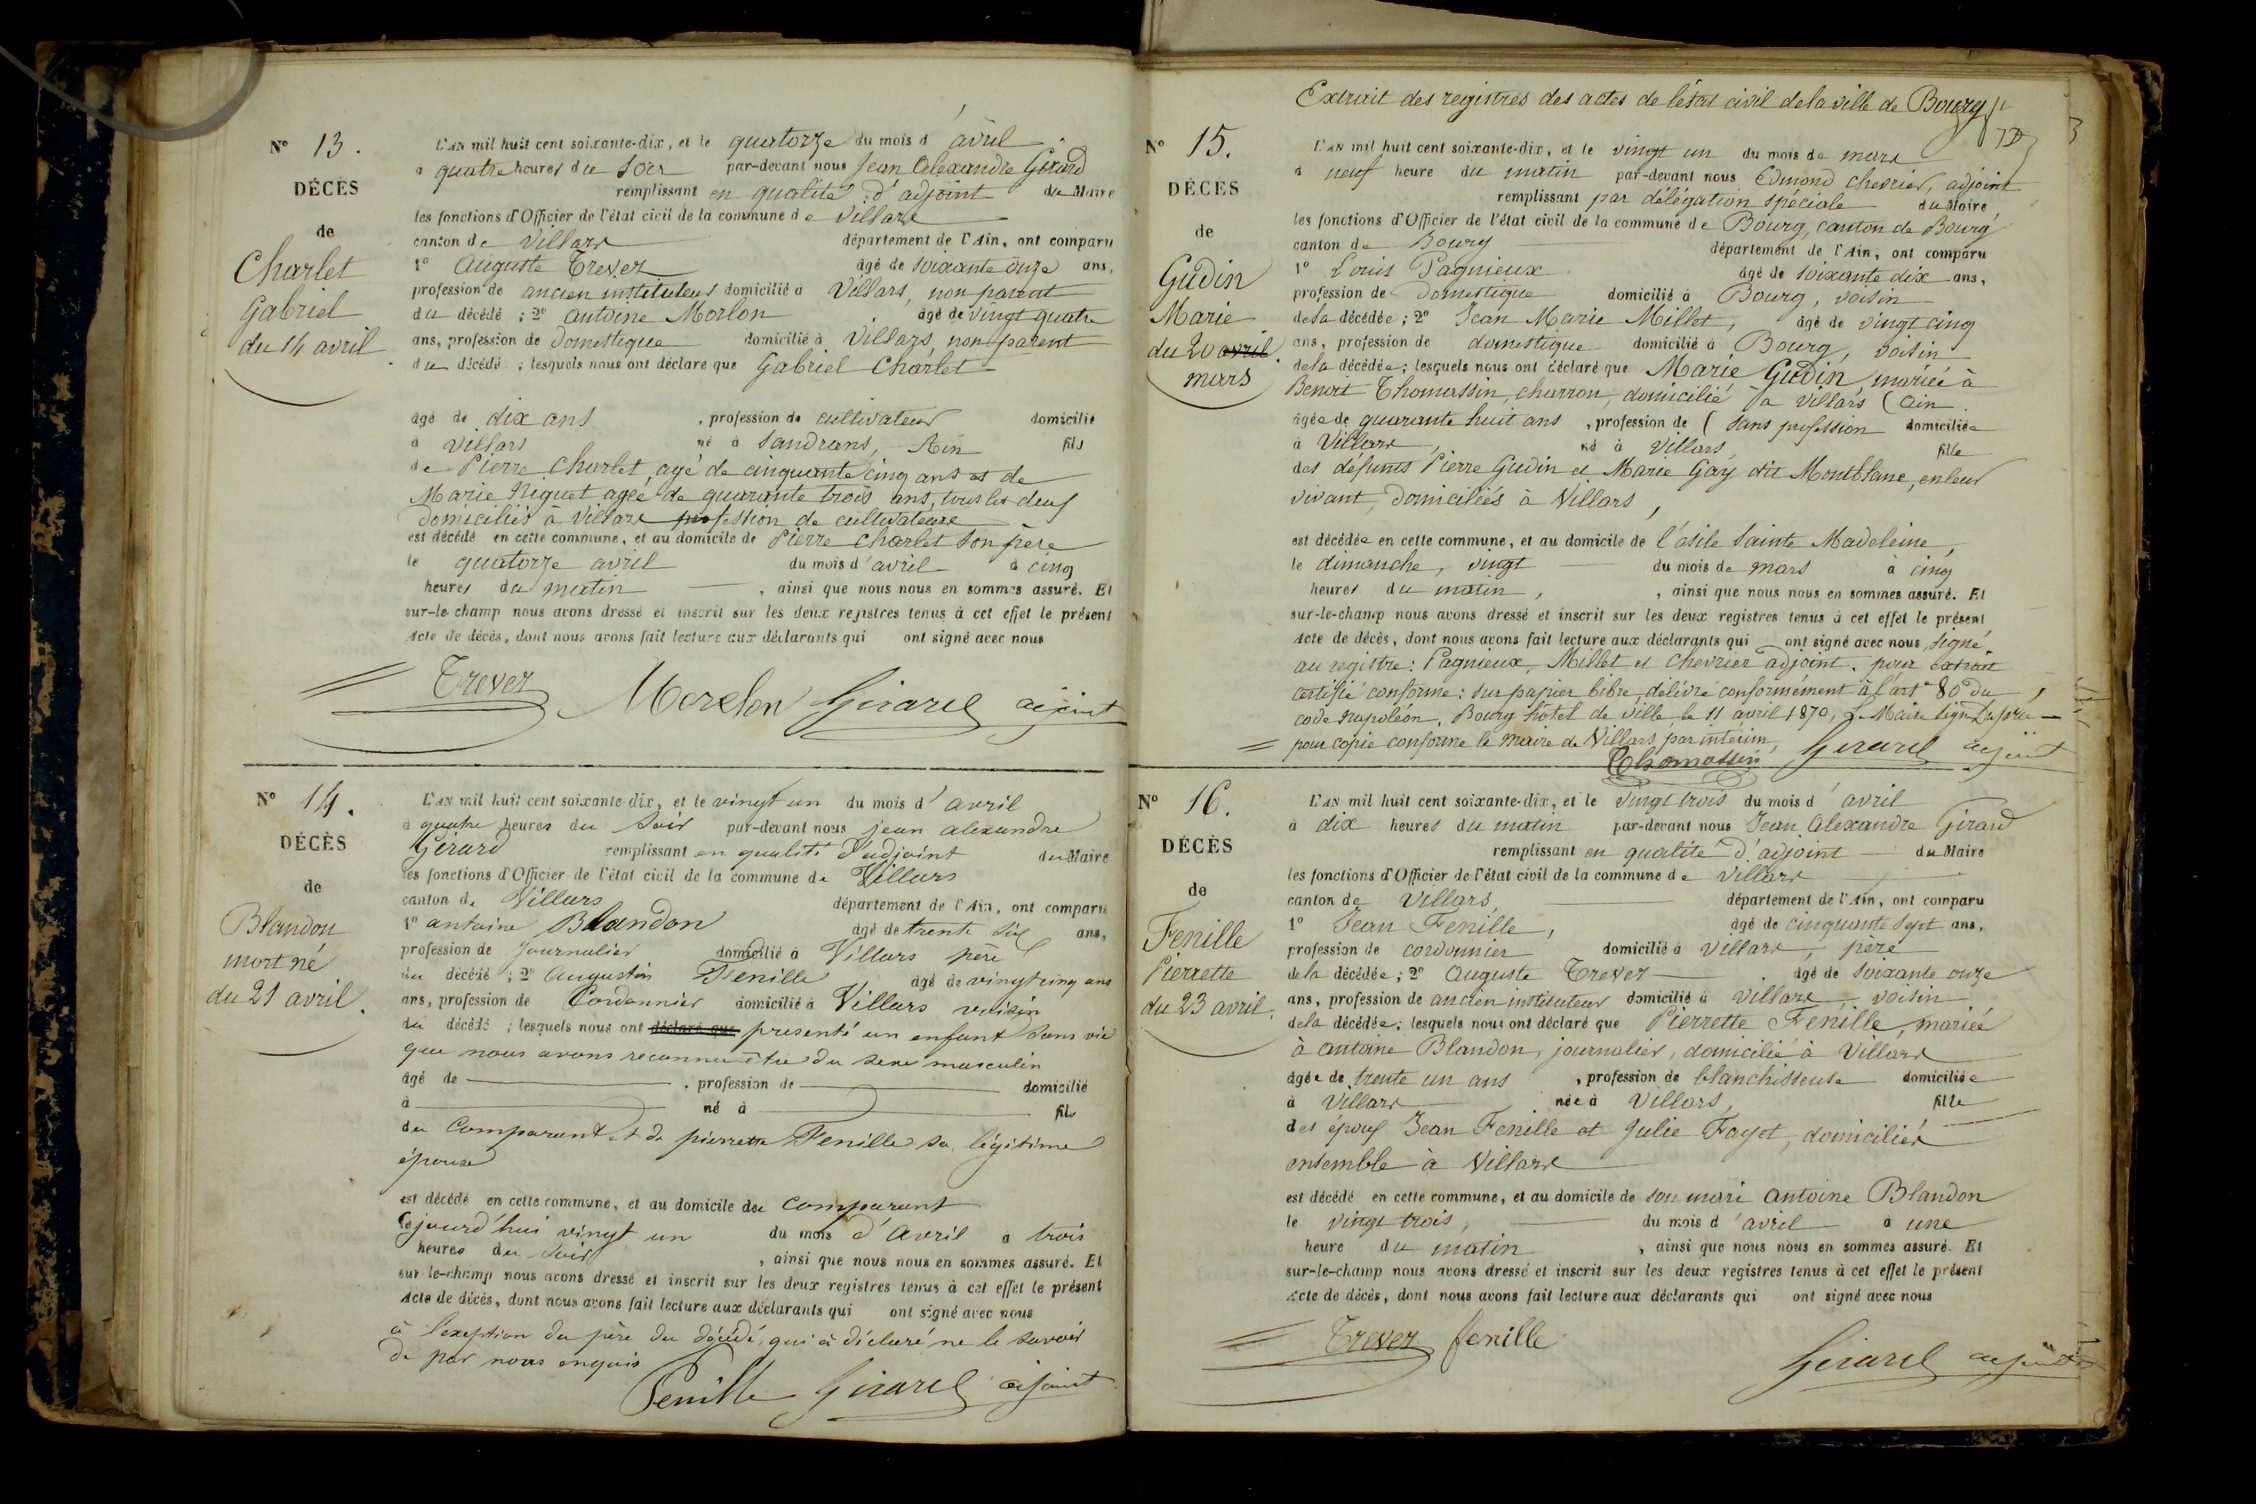 Nº 13.
DÉCÈS
de
Charlet
Gabriel
du 14 avril
L'AN mil huit cent soixante-dix, et le quatorze du mois d'avril
à quatre heures du soir par-devant nous Jean Alexandre Girard
remplissant en qualité d'adjoint du Maire
les fonctions d'Officier de l'état civil de la commune de Villars
canton de Villars département de l'Ain, ont comparu
1º Auguste Trever âgé de soixante onze ans,
profession de ancien instituteur domicilié à Villars, non parent
du décédé ; 2º Antoine Morlon âgé de vingt quatre
ans, profession de Domestique domicilié à Villars, non parent
du décédé ; lesquels nous ont déclaré que Gabriel Charlet
âgé de dix ans, profession de cultivateur domicilié
à Villars né à Sandrans, Ain fils
de Pierre Charlet, agé de cinquante cinq ans et de
Marie Niquet agée de quarante trois ans, tous les deux
domiciliés à Villars profession de cultivateurs
est décédé en cette commune, et au domicile de Pierre Charlet son père
le quatorze avril du mois d'avril à cinq
heures du matin, ainsi que nous nous en sommes assuré. Et
sur-le-champ nous avons dressé et inscrit sur les deux registres tenus à cet effet le présent
Acte de décès, dont nous avons fait lecture aux déclarants qui ont signé avec nous
Trever Morelon Girard adjoint
Nº 14.
DÉCÈS
de
Blandon
mort né
du 21 avril.
L'AN mil huit cent soixante-dix, et le vingt un du mois d'avril
à quatre heures du soir par-devant nous jean alexandre
Girard remplissant en qualité d'adjoint du Maire
les fonctions d'Officier de l'état civil de la commune de Villars
canton de Villars département de l'Ain, ont comparu
1º antoine Blandon âgé de trente six ans,
profession de Journalier domicilié à Villars père
du décédé ; 2º Augustin Fenille âgé de vingt cinq ans
ans, profession de Cordonnier domicilié à Villars voisin
du décédé ; lesquels nous ont déclaré que presenté un enfant sans vie
que nous avons reconnu être du sexe masculin
âgé de , profession de domicilié
à né à fils
du Comparant et de pierrette Fenille sa légitime
épouse
est décédé en cette commune, et au domicile du comparant
le jourd'hui vingt un du mois d'avril à trois
heures du soir, ainsi que nous nous en sommes assuré. Et
sur-le-champ nous avons dressé et inscrit sur les deux registres tenus à cet effet le présent
Acte de décès, dont nous avons fait lecture aux déclarants qui ont signé avec nous
à l'exeption du père du décédé qui à déclaré ne le savoir
de par nous enquis
Fenille Girard adjoint
Extrait des registres des actes de l'état civil de la ville de Bourg
Nº 15.
DÉCÈS
de
Gudin
Marie
du 20 avril.
mars
L'AN mil huit cent soixante-dix, et le vingt un du mois de mars
à neuf heure du matin par-devant nous Edmond Chevrier, adjoint
remplissant par délégation spéciale du Maire
les fonctions d'Officier de l'état civil de la commune de Bourg, canton de Bourg
canton de Bourg département de l'Ain, ont comparu
1º Louis Pagnieux âgé de soixante dix ans,
profession de Domestique domicilié à Bourg, voisin
de la décédée ; 2º Jean Marie Millet, âgé de vingt cinq
ans, profession de domestique domicilié à Bourg, voisin
de la décédée ; lesquels nous ont déclaré que Marie Gudin, mariée à
Benoit Thomassin, charron, domicilié à Villars (Ain
âgée de quarante huit ans, profession de (sans profession domiciliée
à Villars, né à Villars fille
des défunts Pierre Gudin et Marie Gay dit Montblanc, en leur
vivant, domiciliés à Villars,
est décédée en cette commune, et au domicile de l'asile Sainte Madeleine,
le dimanche, vingt du mois de mars à cinq
heures du matin, , ainsi que nous nous en sommes assuré. Et
sur-le-champ nous avons dressé et inscrit sur les deux registres tenus à cet effet le présent
Acte de décès, dont nous avons fait lecture aux déclarants qui ont signé avec nous, signé
au registre : Pagnieux, Millet et Chevrier adjoint. pour extrait
certifié conforme : sur papier libre, délivré conformément à l'art. 80 du
code napoléon, Bourg hôtel de ville le 11 avril 1870, Le Maire signé
pour copie conforme le maire de Villars par intérim, Girard adjoint
Thomassin
Nº 16.
DÉCÈS
de
Fenille
Pierrette
du 23 avril.
L'AN mil huit cent soixante-dix, et le vingt trois du mois d'avril
à dix heures du matin par-devant nous Jean Alexandre Girard
remplissant en qualité d'adjoint du Maire
les fonctions d'Officier de l'état civil de la commune de Villars
canton de Villars, département de l'Ain, ont comparu
1º Jean Fenille, âgé de cinquante sept ans,
profession de cordonnier domicilié à Villars, père
de la décédée ; 2º Auguste Trever âgé de soixante onze
ans, profession de ancien instituteur domicilié à Villars, voisin
de la décédée ; lesquels nous ont déclaré que Pierrette Fenille, mariée
à Antoine Blandon, journalier, domicilié à Villars
âgée de trente un ans, profession de blanchisseuse domiciliée
à Villars née à Villars, fille
des époux Jean Fenille et Julie Fayet, domiciliés
ensemble à Villars
est décédé en cette commune, et au domicile de son mari Antoine Blandon
le vingt trois, du mois d'avril à une
heure du matin, ainsi que nous nous en sommes assuré. Et
sur-le-champ nous avons dressé et inscrit sur les deux registres tenus à cet effet le présent
Acte de décès, dont nous avons fait lecture aux déclarants qui ont signé avec nous
Trever fenille
Girard adjoint